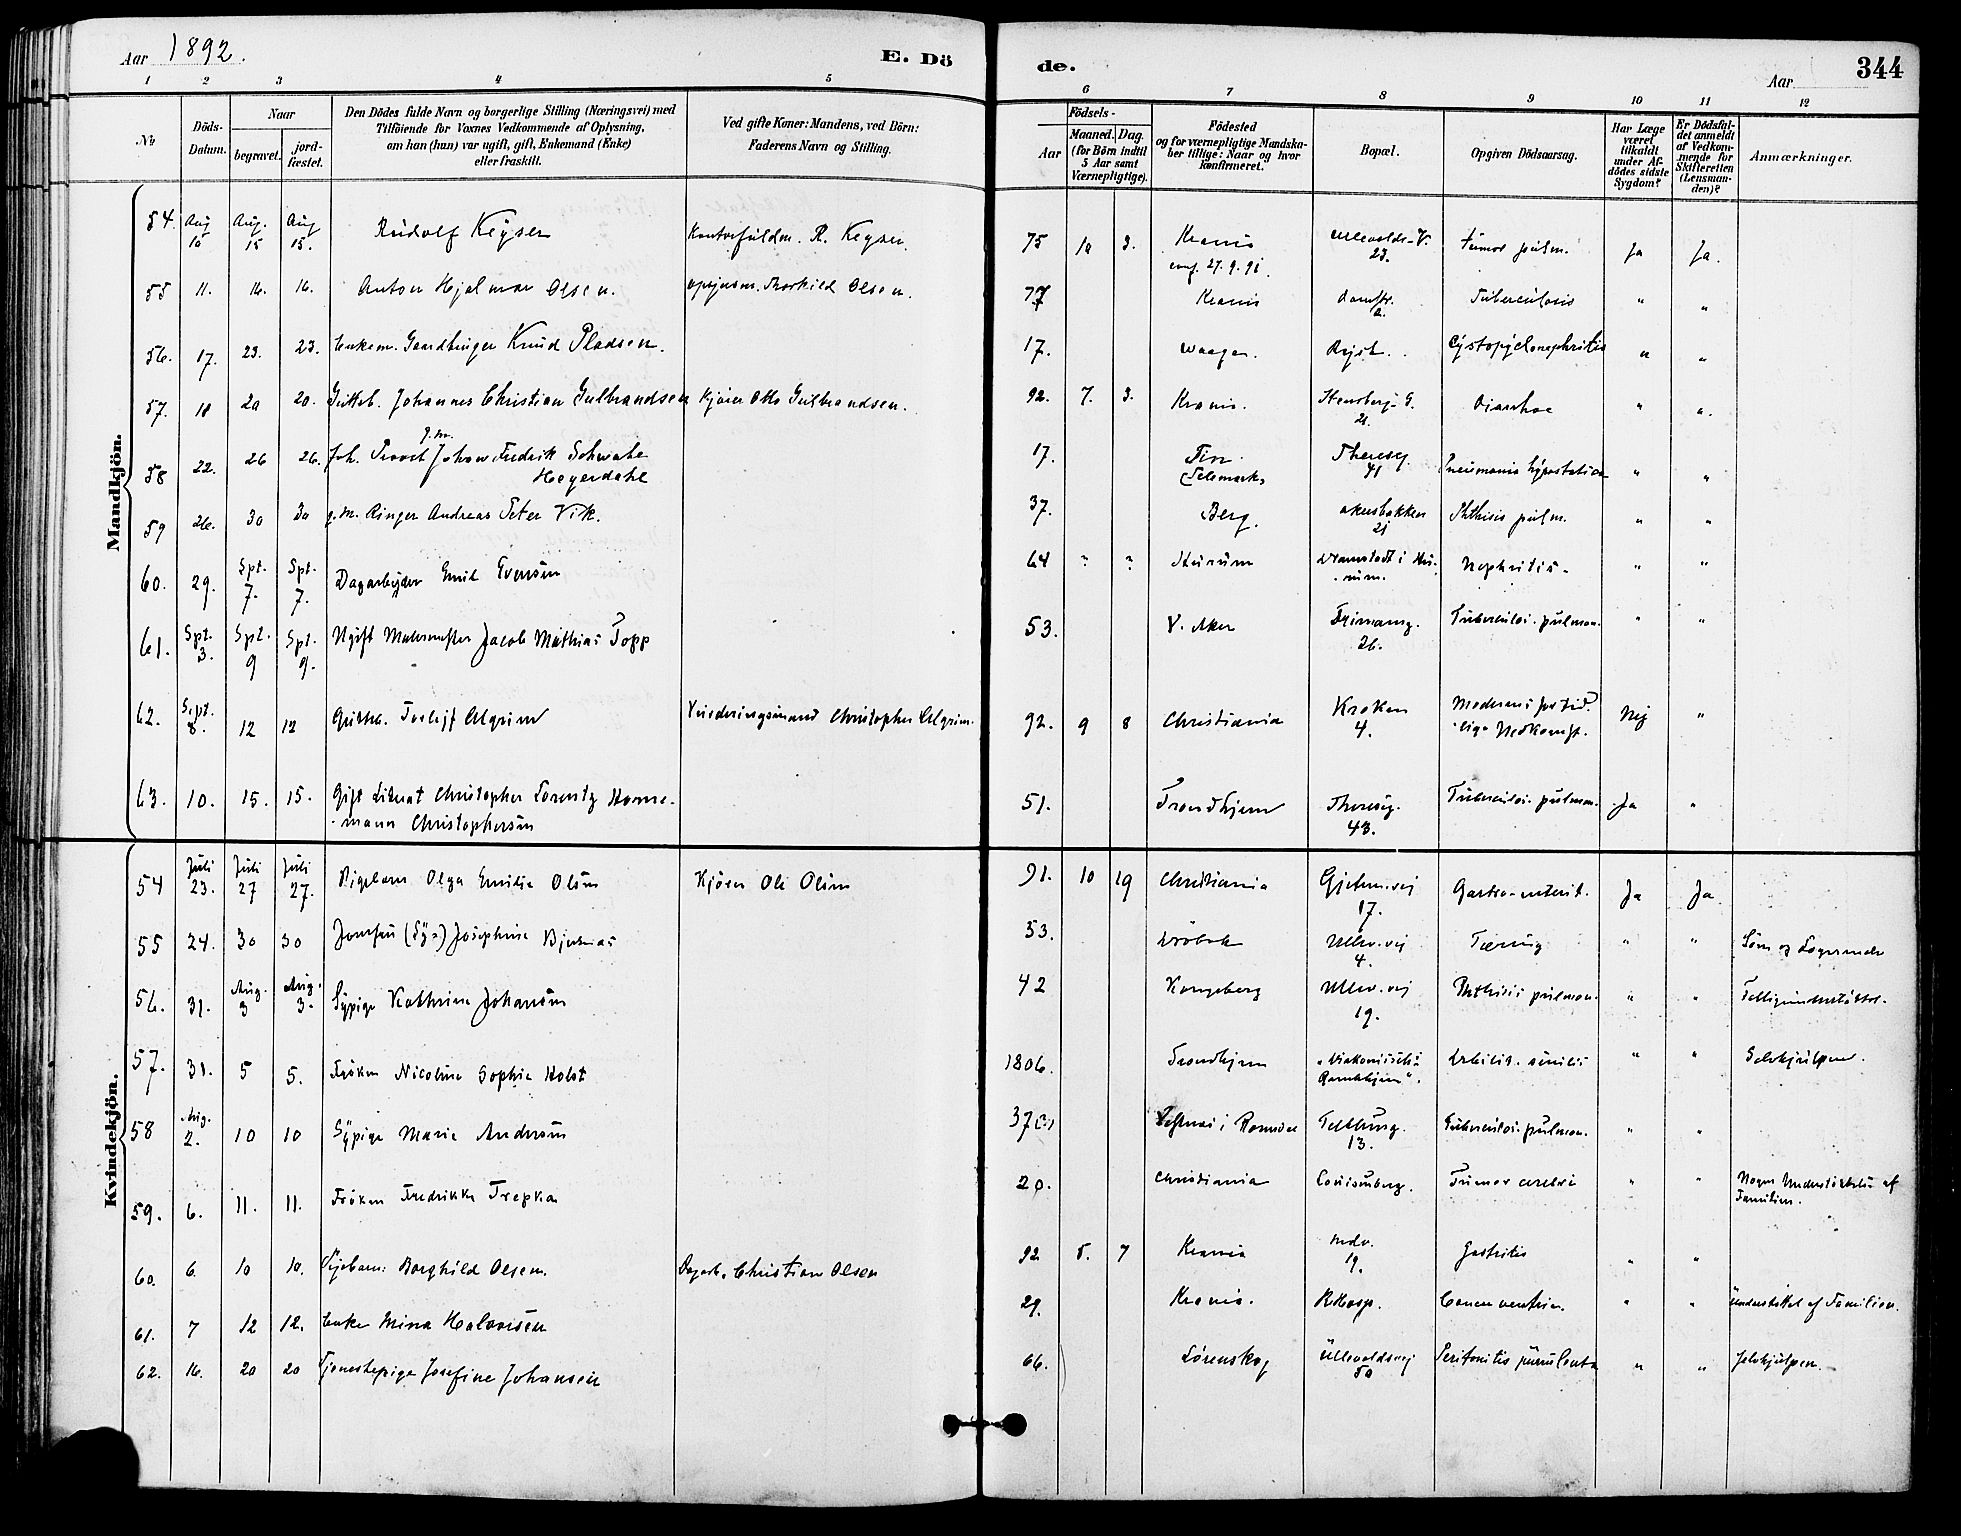 Aar 1892. E. Dö de. Aar 344
1 2 3 4 5 6 7 8 9 10 11 12
No
Döds-Datum.
Naar begravet. jordfæstet.
Den Dödes fulde Navn og borgerlige Stilling (Næringsvei) med
Tilföiende for Voxnes Vedkommende af Oplysning,
om han (hun) var ugift, gift, Enkemand (Enke)
eller fraskilt.
Ved gifte Koner: Mandens, ved Börn:
Faderens Navn og Stilling.
Födsels-
Aar Maaned. Dag.
(for Börn indtil
5 Aar samt
Værnepligtige).
Födested
og for værnepligtige Mandska-
ber tillige: Naar og hvor
konfirmeret.
Bopæl.
Opgiven Dödsaarsag.
Har Læge
været
tilkaldt
under Af-
dödes sidste
Sygdom?
Er Dödsfal-
det anmeldt
af Vedkom-
mende for
Skifteretten
(Lensman-
den)?
Anmærkninger.
Mandkjön.
54. Aug 10 Aug. 15 Aug 15. Rudolf Keyser R. Keyser. 75 10 3. Krania conf. 27.9.91. Ullevolds-V. 23. Tumor pulm. Ja Ja.
55 11. 16. 16. Anton Hjalmar Olsen. Thorkild Olsen. 77 Krania Tuberculosis " "
56. 17. 23. 23. Enkem. Gaardbruger Knud Pladsen. 17. Waagen. Cystopyelonephritis " "
57. 18 20 20. Gutteb. Johannes Christian Gulbrandsen Kjörer Otto Gulbrandsen. 92. 7. 3. Krania. Stensberg-G. 21. Diarrhoe " ".
58 22. 26 26. g.m. Johan Fredrik Schwabe
Heyerdahl 17. Tin Telemark, Theresg. 41 Pneumonia hypostatica " "
59 26. 30 30 g.m. Ringer Andreas Peter Vik. 37. Berg. Akersbakken 21 Phthisis pulm. " "
60. 29. Spt. 7. Spt. 7. Dagarbejder Emil Evensen 64 ? ? Hurum Dramstadt i Hu-
rum. Nephritis. " "
61. Spt. 3. Spt. 9 Spt. 9. Ugift Malermester Jacob Mathias Topp 53. V. Aker Frimansg. 26. Tuberculos. pulmon. " "
62. Sept. 8. 12 12 Gutteb. Torleif Elgrim Christopher Elgrim. 92. 9 8 Christiania Kroken 4. Moderens for tid-
lige Nedkomst. Nej "
63. 10. 15. 15. Gift Literat Christopher Lorentz Horne-
mann Christophersen 51. Trondhjem Theresg. 43. Tuberculos. pulmon. Ja "
Kvindekjön.
54 Juli 23. Juli 27 Juli 27. Pigebarn Olga Emilie Olsen Kjörer Ole Olsen 91. 10 19 Christiania Gjetem.vej 17. Gastro-enterit. Ja Ja
55 24. 30 30 Jomfru (Sy-) Josephine Bjerknæs 53. Dröbak Ullev.vej 4. Tæring " " Söm og Logerende
56. 31. Aug. 3 Aug. 3. Sypige Kathrine Johansen 42 Kongsberg Ullev.vej 19. Phthisis pulmon. " " Fattigunderstöttet.
57. 31. 5 5. Fröken Nicoline Sophie Holst 1806. Trondhjem "Diakonisse-
" Debilit. senilis " " Selvhjulpen.
58 Aug. 2. 10 10 Sypige Marie Andersen 37(?) i Romsdal Teltburg. 13. Tuberculos. pulmon. " "
59. 6. 11. 11. Fröken Fredrikke Trepka 20. Christiania Louisenberg. Tumor cerebri " " Nogen Understöttelse af
Familien.
60. 6. 10 10. Pigebarn: Borghild Olsen. Dagarb. Christian Olsen 92 5. 7 Krania 19. Gastritis " "
61. 7 12 12. Enke Mina Halvorsen 29. Krania. R.Hosp. Cancer ventric. " " Understöttet af Familien.
62. 16. 20 20 Tjenestepige Josefine Johansen 66. Lörenskog Ullevoldsvej 50 Peritonitis purulenta " " Selvhjulpen.